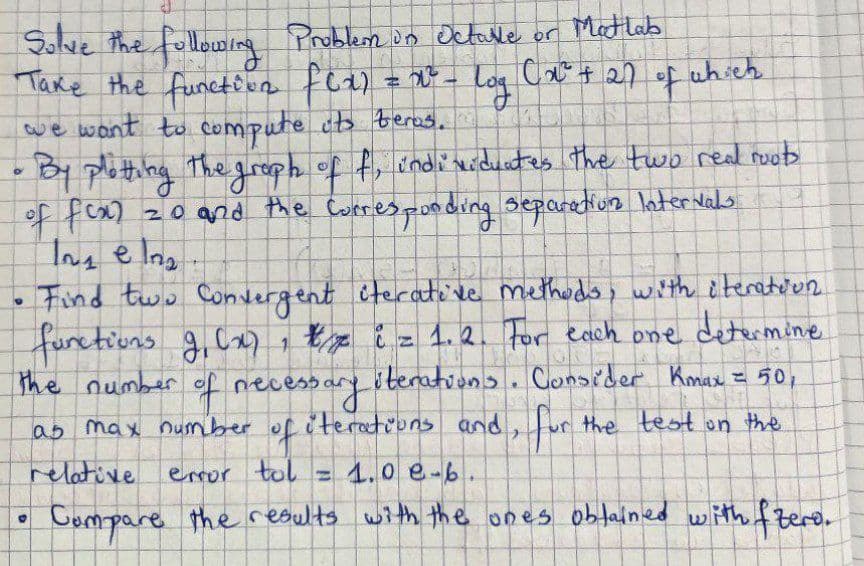 Solve the following Problem in Octave or Matlab
Take the function f(x) = x² - log (x² + 2) of which
we want to compute its zeros.
• By plotting the graph of f, individuates the two real roots
of f(x) = 0 and the Corresponding separation Intervals
In₁ e In₂.
• Find two Convergent iterative methods, with iteration
functions gᵢ(x), i = 1.2. For each one determine
the number of necessary iterations. Consider Kmax = 50,
as max number of iterations and, for the test on the
relative error tol = 1.0 e-6.
• Compare the results with the ones obtained with fzero.